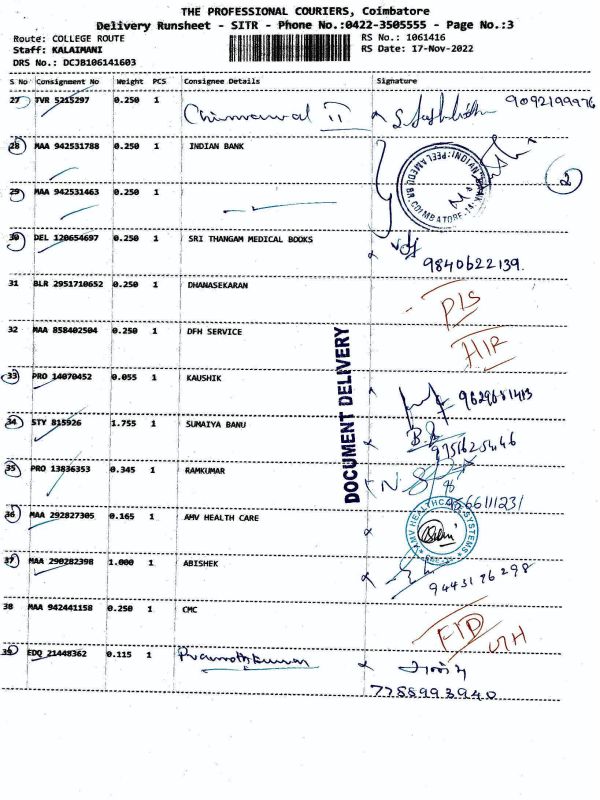 THE PROFESSIONAL COURIERS, Coimbatore
Delivery Runsheet - SITR - Phone No.:0422-3505555 - Page No.:3
Route: COLLEGE ROUTE RS No.: 1061416
Staff: KALAIMANI RS Date: 17-Nov-2022
DRS No.: DCJB106141603
S No Consignment No Weight PCS Consignee Details Signature
27 TVR 5215297 0.250 1 9092199976
28 MAA 942531788 0.250 1 INDIAN BANK
29 MAA 942531463 0.250 1 2
30 DEL 120654697 0.250 1 SRI THANGAM MEDICAL BOOKS
9840622139.
31 BLR 2951710652 0.250 1 DHANASEKARAN P/S
32 MAA 858402504 0.250 1 DFH SERVICE H/R
33 PRO 14070452 0.055 1 KAUSHIK 9629681413
34 STY 815926 1.755 1 SUMAIYA BANU
9751625446
35 PRO 13836353 0.345 1 RAMKUMAR N.S
9566111231
36 MAA 292827305 0.165 1 AMV HEALTH CARE
AMV HEALTHCARE SYSTEMS
37 MAA 290282398 1.000 1 ABISHEK
9443126298
38 MAA 942441158 0.250 1 CMC
39 EDQ 21448362 0.115 1 Pramothkumar
7788993940
DOCUMENT DELIVERY